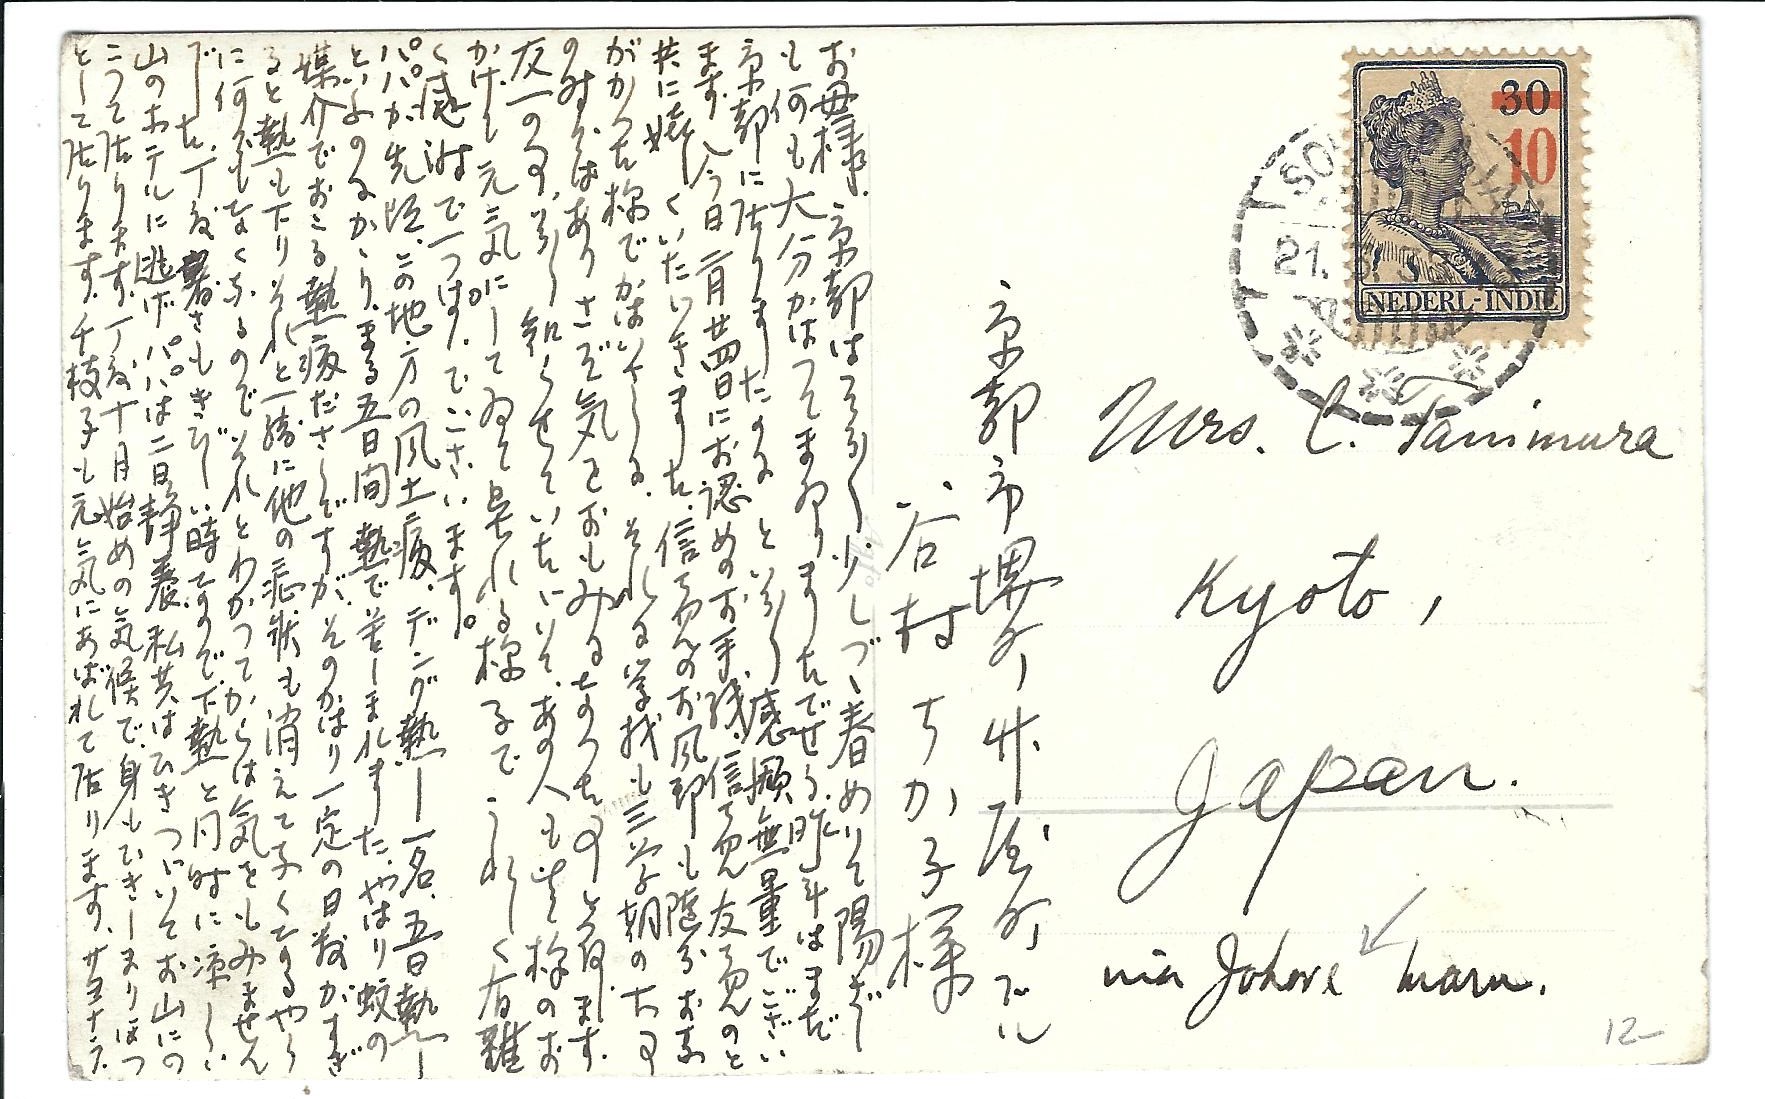 お母様、京都はそろ〱少しづゝ春めいて陽ざし
も何も大分かはつてまゐりましたでせう、昨年はまだ
京都に居りましたのにとそゞろ感慨無量でござい
ます、今日二月廿四日にお認めのお手紙、信ちやん友ちやんのと
共に嬉しくいたゞきました、信ちやんのお風邪も随分お長
がかつた様でかはいさうに、それに学校も三学期の大切
の時ではありさぞ気をおもみなすつた事と存じます、
友一の事、
かげも元気にしてゐて呉れる様子でうれしく有難
く感謝で一ぱいでございます。
パパが先頃この地方の風土病、デング熱 一名、五日熱
といふのにかゝり、まる五日間熱で苦しまれました、やはり蚊の
媒介でおこる熱病ださうですが、そのかはり一定の日数がすぎ
ると熱も下りそれと一緒に他の症状も消えてなくなるやう
に何でもなくなるのでそれとわかつてからは気をもみません
でした、丁度暑さもきびしい時でしたので下熱と同時に涼しい
山のホテルに逃げパパは二日静養私共はひきつゞいてお山にの
こつて居ります、丁度十月始めの気候で、身もひきしまりほつ
として居ります、千枝子も元気にあばれて居ります、サヨナラ
京都市堺町竹屋町下ル
谷村 ちか子様
30
10
NEDERL-INDIË
21.
Mrs. C. Tanimura
Kyoto,
Japan.
via Johore Maru.
12-